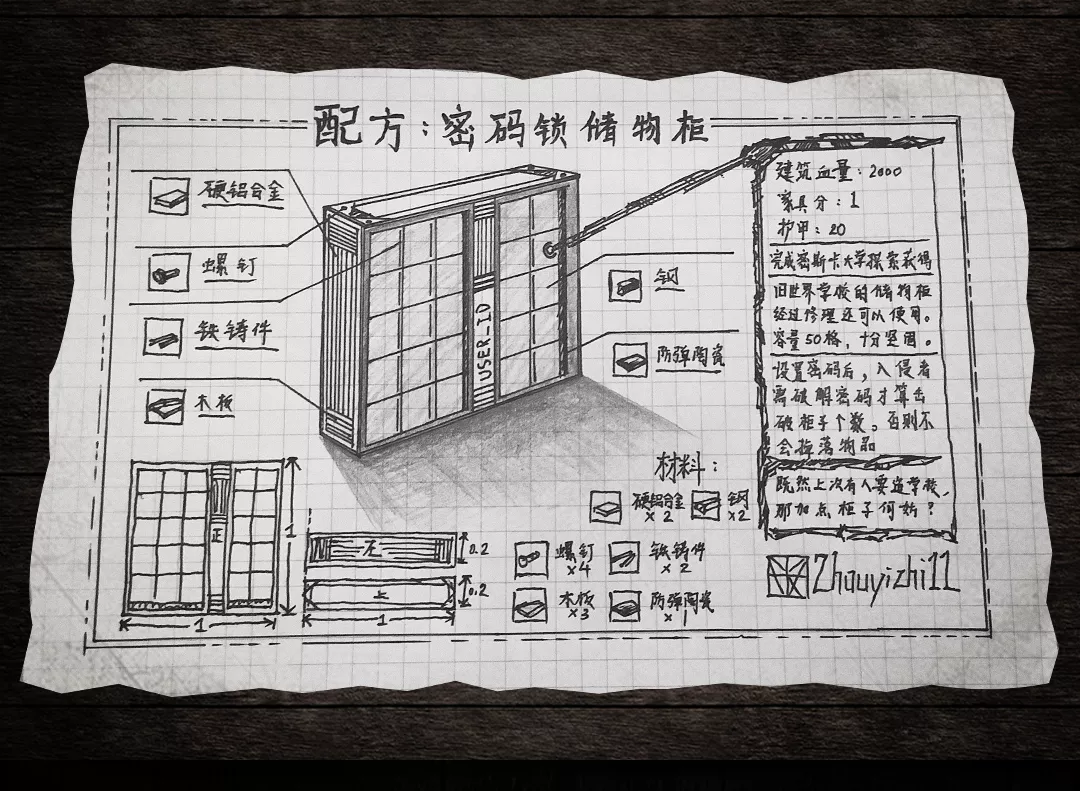 配方:密码锁储物柜
硬铝合金
螺钉
铁铸件
木板
USER_ID
钢
防弹陶瓷
建筑血量:2000
家具分:1
护甲:20
完成密斯卡大学探索获得
旧世界学校的储物柜
经过修理还可以使用。
容量50格,十分坚固。
设置密码后,入侵者
需破解密码才算击
破柜子个数,否则不
会掉落物品
既然上次有人要造学校,
那加点柜子何妨?
Zhouyizhi11
材料:
硬铝合金
×2
钢
×2
螺钉
×4
铁铸件
×2
木板
×3
防弹陶瓷
×1
正
1
1
左
0.2
上
0.2
1